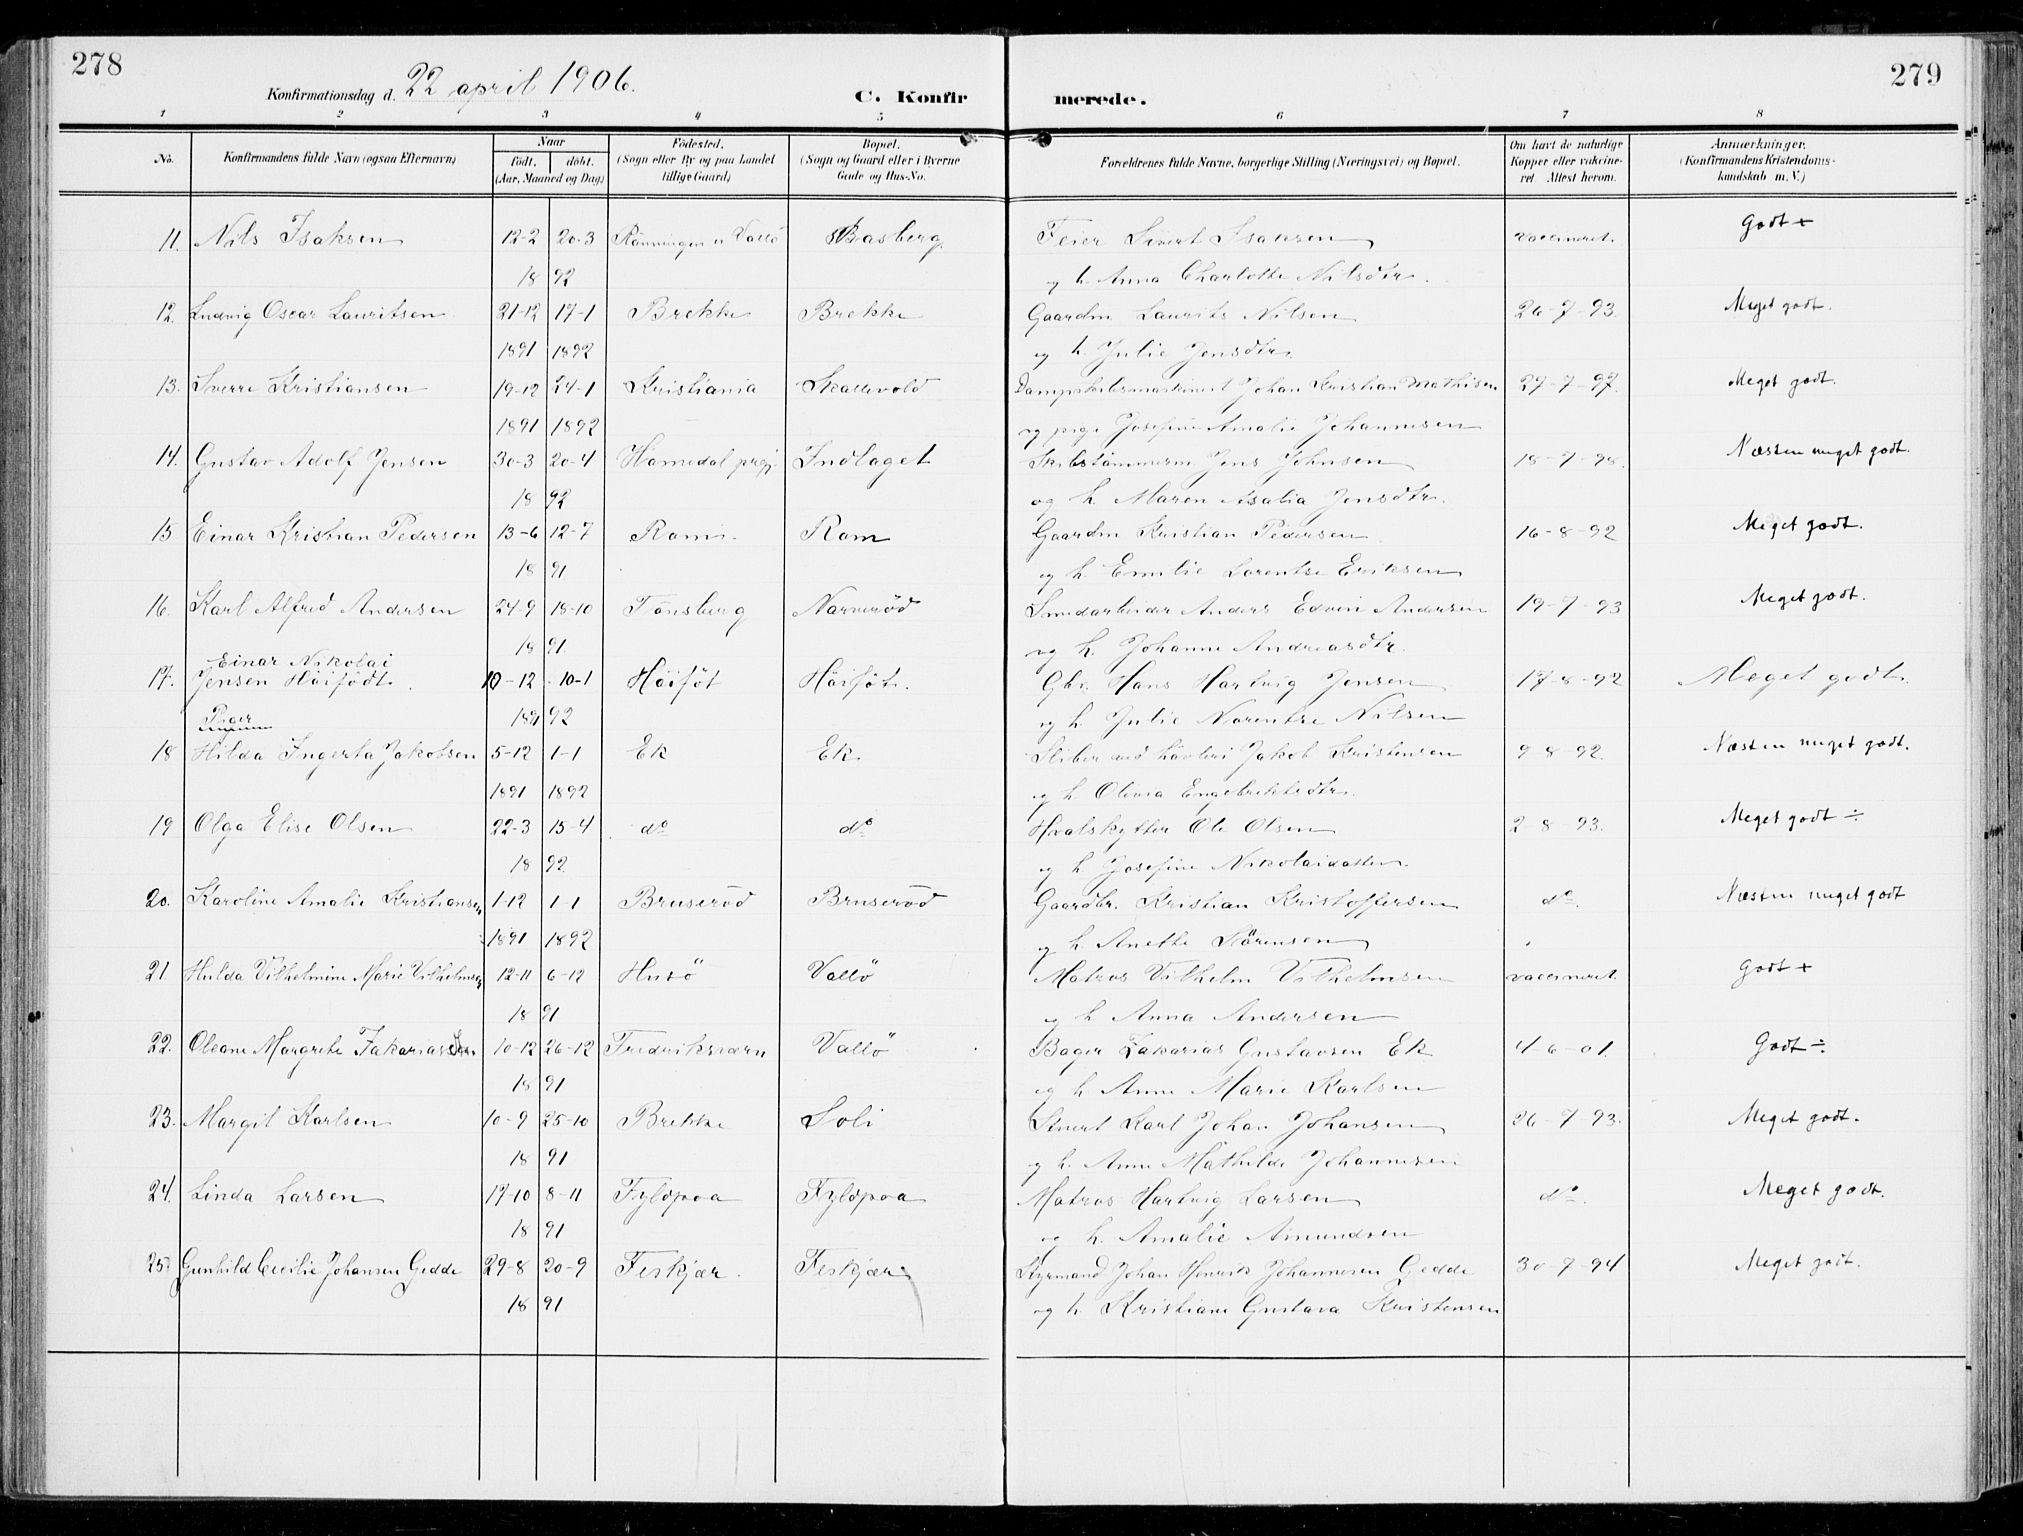 278
279
Konfirmationsdag d. 22 april 1906.
C. Konfirmerede.
1 2 3 4 5 6 7 8
No.
Konfirmandens fulde Navn (ogsaa Efternavn)
Naar
født. døbt.
(Aar, Maaned og Dag)
Fødested.
(Sogn eller By og paa Landet
tillige Gaard)
Bopæl.
(Sogn og Gaard eller i Byerne
Gade og Hus-No.
Forældrenes fulde Navne, borgerlige Stilling (Næringsvei) og Bopæl.
Om havt de naturlige
Kopper eller vakcine-
ret. Attest herom.
Anmærkninger.
(Konfirmandens Kristendoms-
kundskab m. V.)
11. Nils Isaksen 12-2 20-3 Rønningen v Vallø Basberg. Feier Sivert Isaksen vaccineret. Godt +
18 92 og h. Anna Charlotte Nilsdtr.
12. Ludvig Oscar Lauritsen 21-12 17-1 Brekke Brekke Gaardm Laurits Nilsen 26-7-93. Meget godt.
1891 1892 og h. Julie Jensdtr.
13. Sverre Kristiansen 19-12 24-1 Kristiania Skallevold Dampskibsmaskinist Johan Kristian Mathisen 27-7-97. Meget godt.
1891 1892 og pige Josefine Amalie Johannesen
14. Gustav Adolf Jensen 30-3 20-4 Homedal prgj. Indlaget Skibstømmerm Jens Johnsen 18-7-98. Næsten meget godt.
18 92 og h. Maren Asalia Jensdtr.
15 Einar Kristian Pedersen 13-6 12-7 Rom Rom Gaardm Kristian Pedersen 16-8-92 Meget godt.
18 91 og h. Emilie Lorentse Eriksen
16. Karl Alfred Andersen 24-9 18-10 Tønsberg Narverød Smedarbeider Anders Edvin Andersen 19-7-93 Meget godt.
18 91 og h. Johanne Andreasdtr.
Einar Nikolai
17. Jensen Høifødt. 10-12 10-1 Høiføt Høiføt. Gbr. Hans Hartvig Jensen 17-8-92 Meget godt.
1891 92 og h. Julie Narentse Nilsen
Piger
18 Hilda Ingerta Jakobsen 5-12 1-1 Ek Ek. Sliber ved høvleri Jakob Kristensen 9-8-92. Næsten meget godt.
1891 1892 og h Olivia Engebriktsdtr.
19 Olga Elise Olsen 22-3 15-4 do do Hvalskytter Ole Olsen 2-8-93. Meget godt ÷
18 92 og h Josefine Nikolaidatter.
20. Karoline Amalie Kristiansen 1-12 1-1 Bruserød Bruserød Gaardbr. Kristian Kristoffersen do. Næsten meget godt
1891 1892 og h. Anette Sørensen
21. Hulda Vilhelmine Marie Vilhelmsen 12-11 6-12 Husø Vallø Matros Vilhelm Vilhelmsen vaccineret. Godt +
18 91 og h Anna Andersen
22. Oleane Margrete Zakariassen 10-12 26-12 Fredriksværn Vallø Bager Zakarias Gustavsen Ek 4-6-01. Godt ÷
18 91 og h Anne Marie Karlsen
23. Margit Karlsen 10-9 25-10 Brekke Soli Stuert Karl Johan Johansen 26-7-93. Meget godt.
18 91 og h. Anne Mathilde Johannesen
24. Linda Larsen 17-10 8-11 Fyldpaa Fyldpaa Matros Hartvig Larsen do. Meget godt.
18 91 og h. Amalie Amundsen
25. Gunhild Cecilie Johansen Gedde 29-8 20-9 Feskjær. Feskjær Styrmand Johan Henrik Johannesen Gedde 30-7-94 Meget godt.
18 91 og h. Kristiane Gustava Kristensen